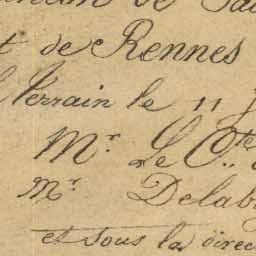 de
t de Rennes
Terrain le 11 J
Mr. Le Cte
Mr. Delab
et sous la direc